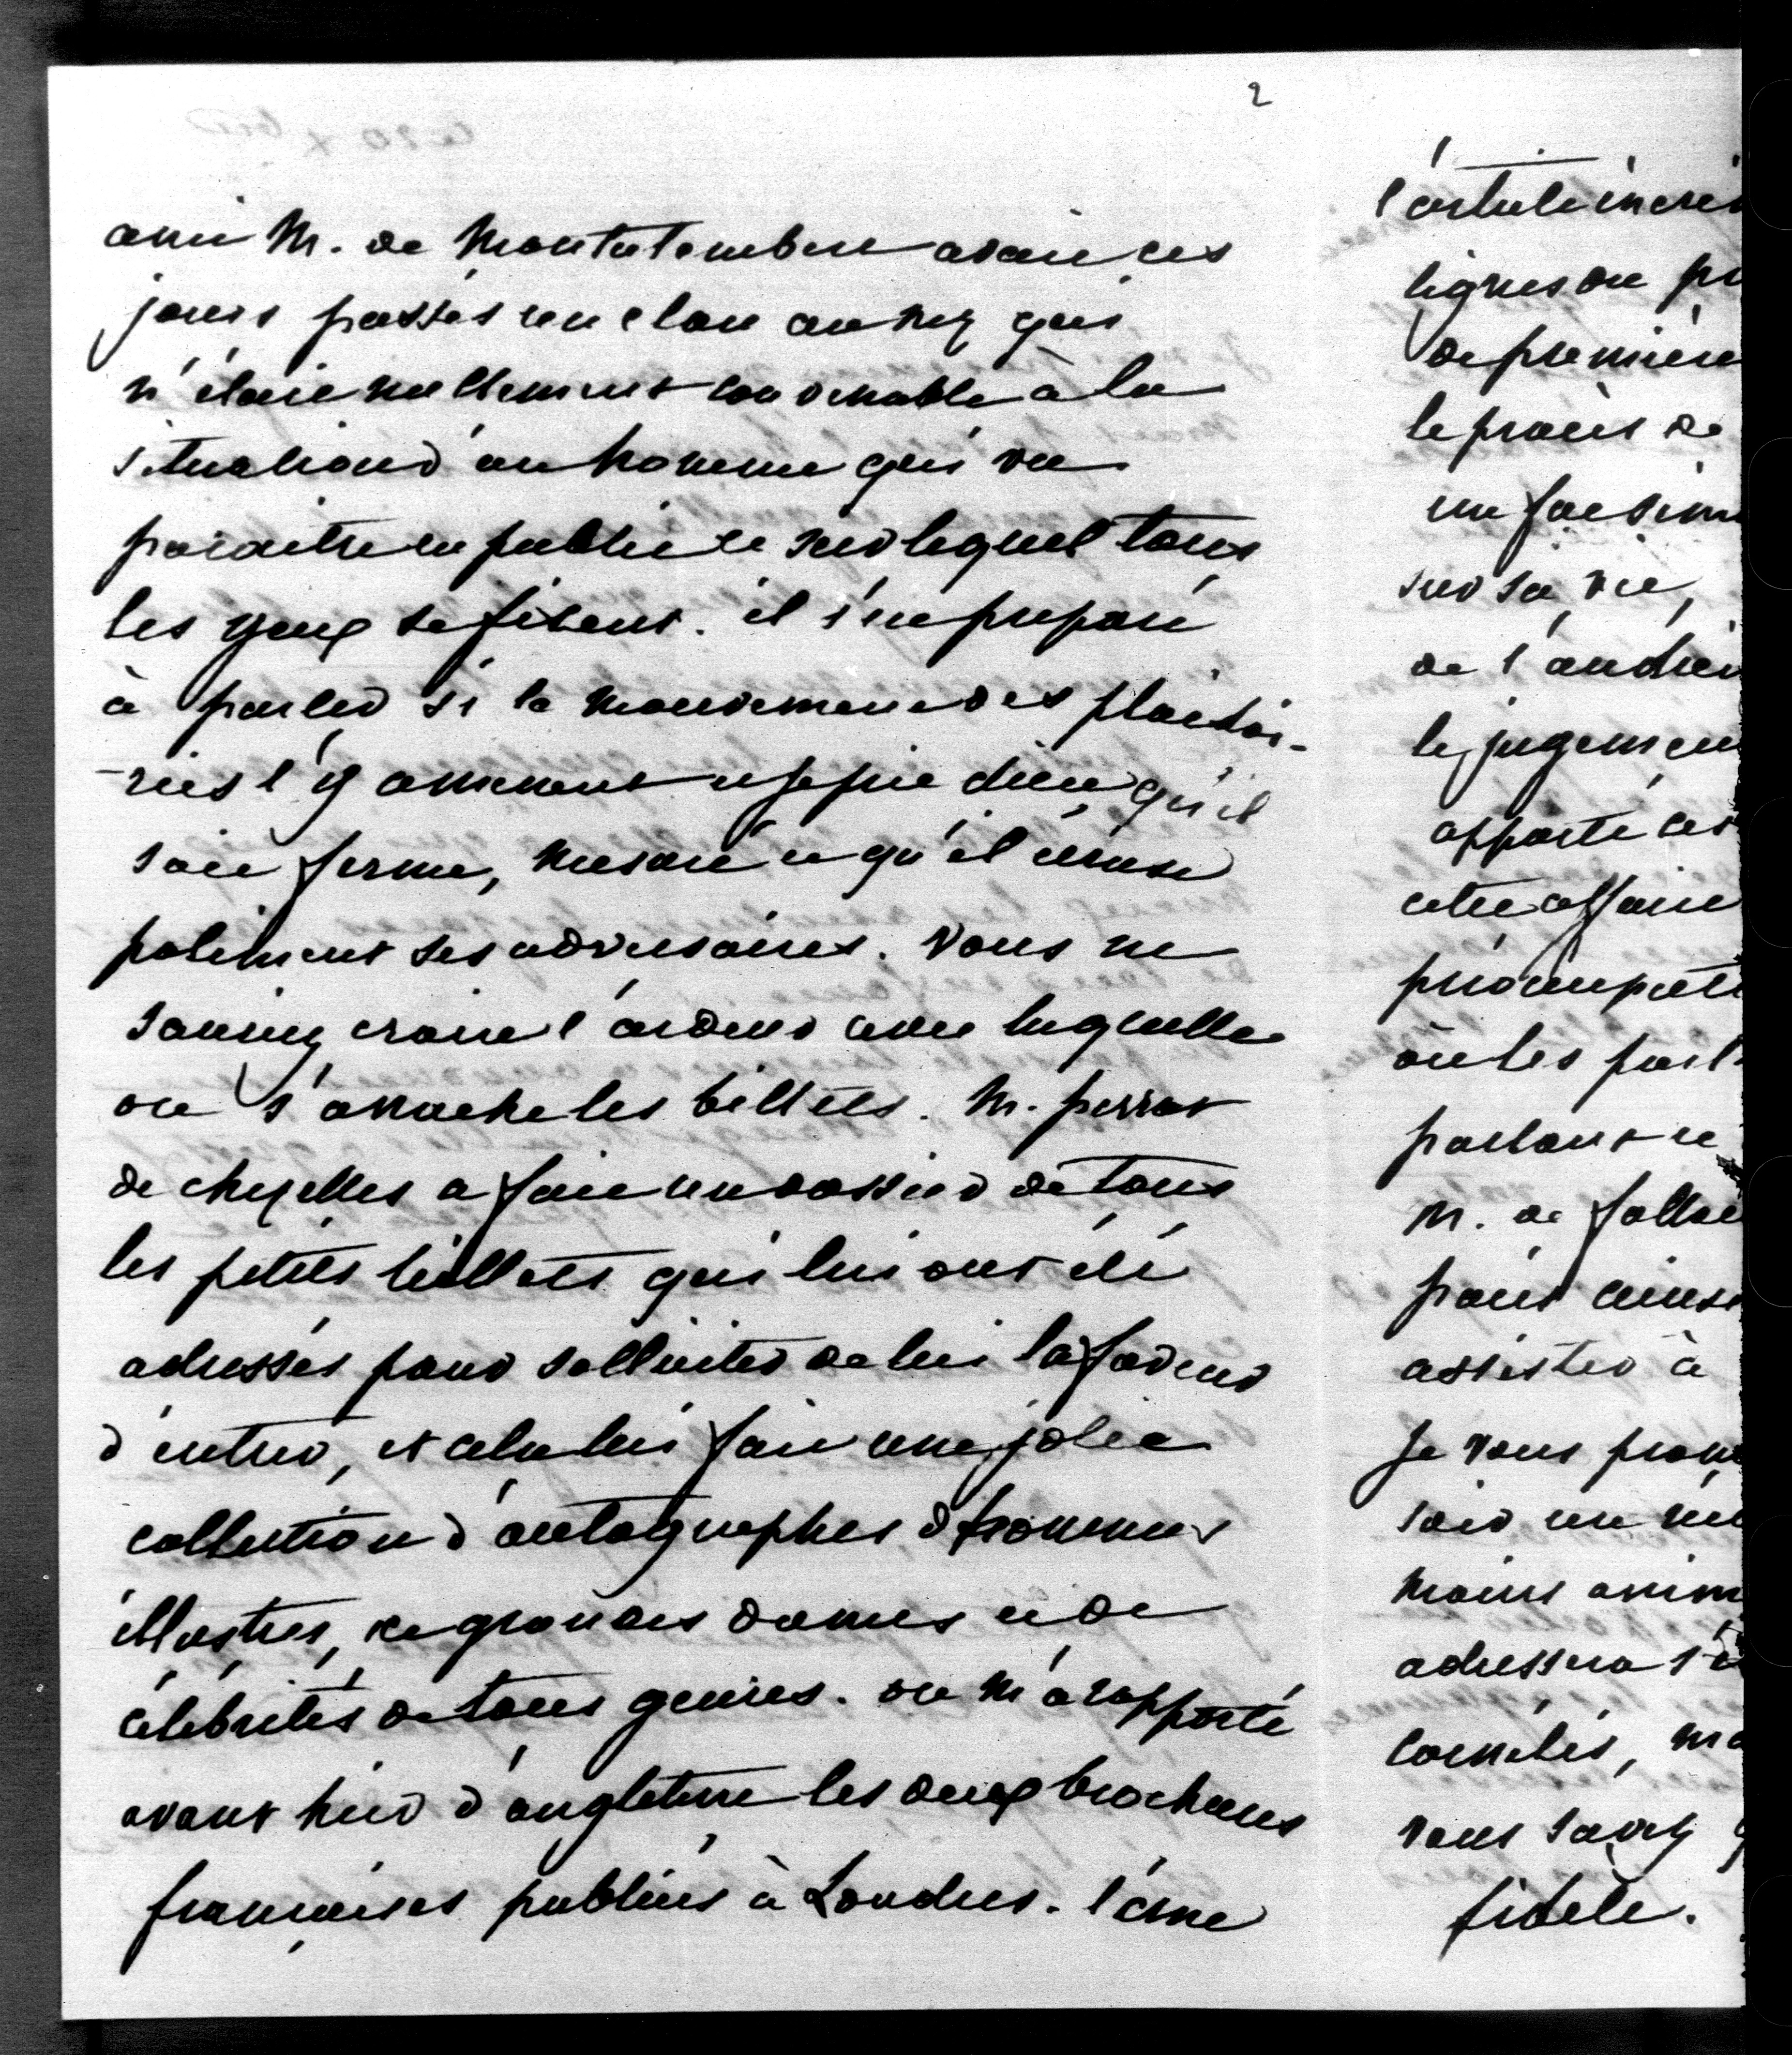 2
ami M. de Montalembert avait ces
jours passés un clou au nez qui
n'était nullement convenable à la
situation d'un homme qui va
paraitre en public et sur lequel tous
les yeux se fixent. il s'est préparé
à parler si le mouvement des plaidoi-
-ries l'y amenent et je prie dieu qu'il
soit ferme, mesuré et qu'il écrase
poliment ses adversaires. vous ne
sauriez croire l'ardeur avec laquelle
on s'arrache les billets. M. perrot
de chezelles a fait un dossier de tous
les petits billets qui lui ont été
adressés pour solliciter de lui la faveur
d'entrer, et cela lui fait une jolie
collection d'autographes d'hommes
illustres, de grandes dames et de
célébrités de tous genres. on m'a rapporté
avant hier d'angleterre les deux brochures
françaises publiées à Londres. l'une
l'article incri
lignes ou pr
de premiere
le procès de
un facsimi
sur sa vie,
de l'audien
le jugement
apporte ces
cette affaire
préoccupati
où les parl
parlant et
M. de fallou
paris
assister à
Je vous prom
soir un
moins anim
adressera
comités, ma
vous savez q
fidèle.